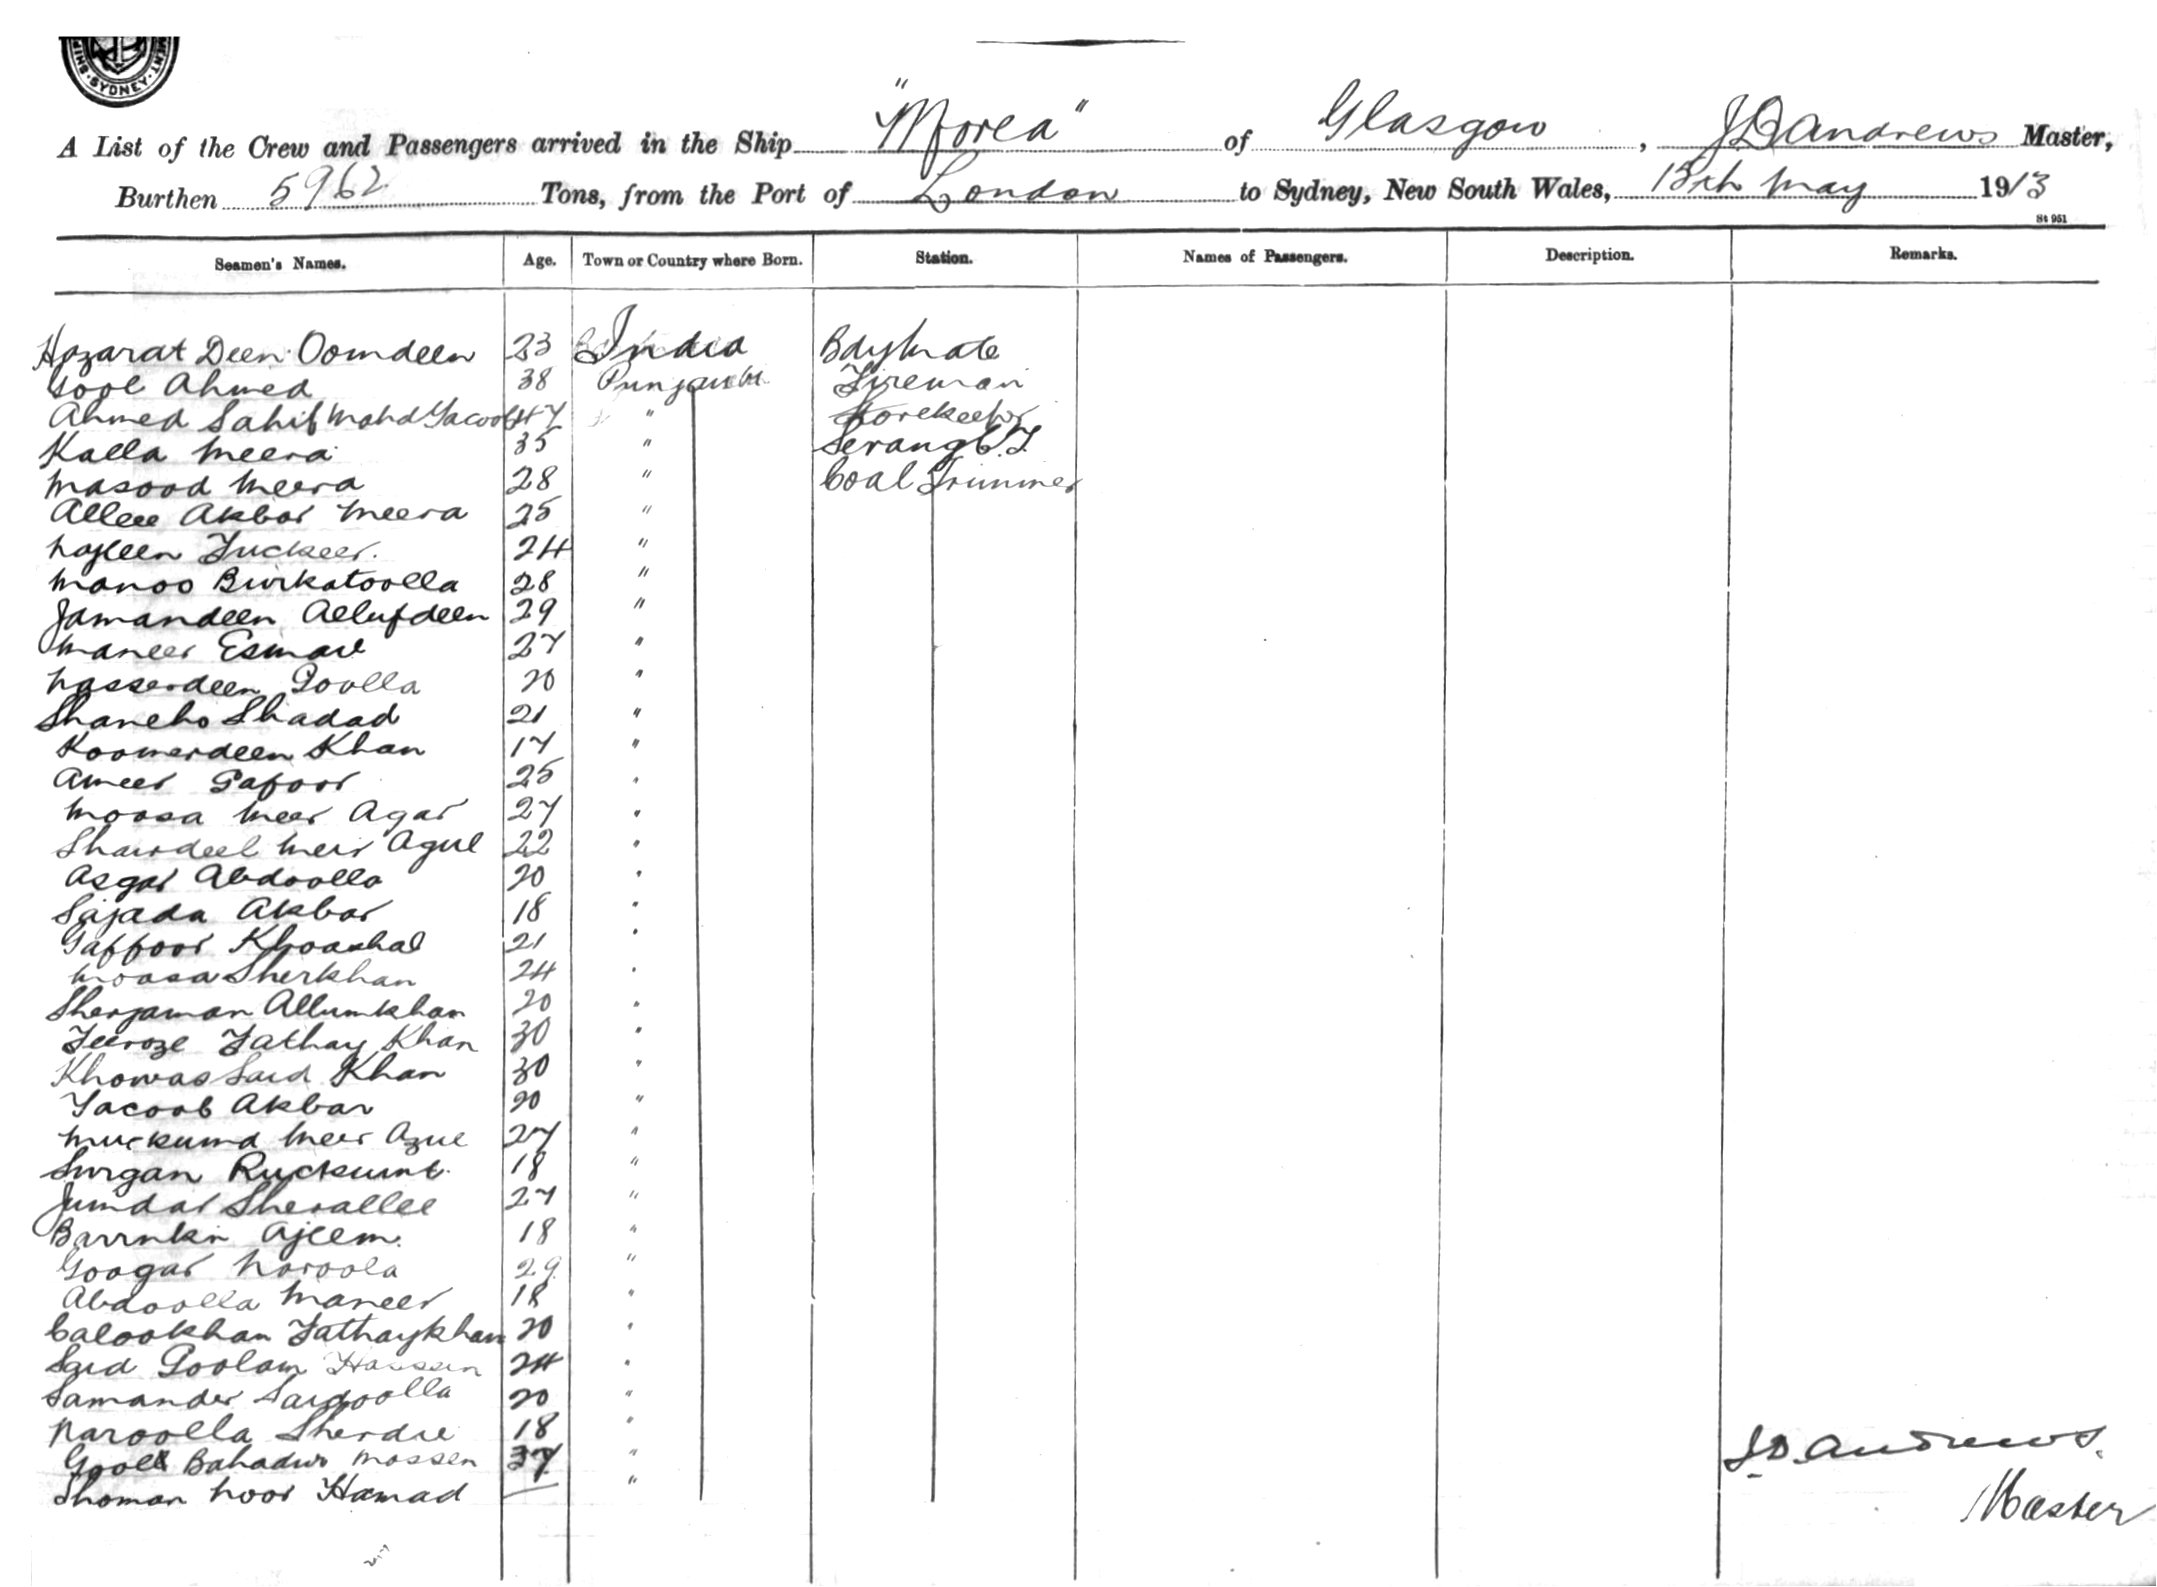 SYDNEY
A List of the Crew and Passengers arrived in the Ship "Morea" of Glasgow, J D Andrews Master,
Burthen 5962 Tons, from the Port of London to Sydney, New South Wales, 15th May 1913
St 951
Seamen's Names. Age. Town or Country where Born. Station. Names of Passengers. Description. Remarks.
Hazarat Deen Oomdeen 23 India Bdy Mate
Gool Ahmed 38 Punjaub Fireman
Ahmed Sahib Mohd Yacoob 47 " Storekeeper
Kalla Meera 35 " Serang C.T.
Masood Meera 28 " Coal Trimmer
Allee Akbar Meera 25 "
Fuckeer. 24 "
Manoo Burkatoolla 28 "
Jamandeen Allufdeen 29 "
Maneer Esmail 27 "
Nasserdeen Goolla 20 "
Shaneho Shadad 21 "
Koomerdeen Khan 17 "
Ameer Gafoor 25 "
Moosa Meer Agar 27 "
Meir Agul 22 "
Asgar Abdoolla 20 "
Sajada Akbar 18 "
Gaffoor Khoashal 21 "
Moosa Sherkhan 24 "
Sherzaman Allumkhan 20 "
Feeroze Fathay Khan 30 "
Khowas Said Khan 30 "
Yacoob Akbar 20 "
Muckumd Meer Azul 27 "
Surgan Ruckumt 18 "
Jumdar Sherallee 27 "
Ajeem. 18 "
Googar Noroola 29 "
Abdoolla Maneer 18 "
Calookhan Fathaykhan 20 "
Said Goolam Hassan 24 "
Samander Saidoolla 20 "
Naroolla Sherdil 18 "
Gool Bahadur Mossen 37 "
Shoman Noor Hamad "
J.D. Andrews.
Master